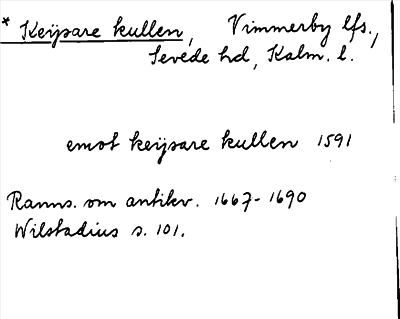 * Keÿsare kullen, Vimmerby lfs.,
Sevede hd, Kalm. l.
emot keÿsare kullen 1591
Ranns. om antikv. 1667-1690
Wilstadius s. 101.